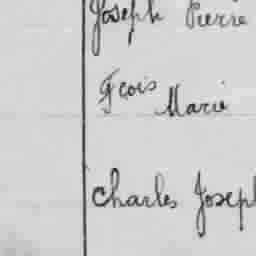 Joseph Pierre
Fçois Marie
Charles Joseph